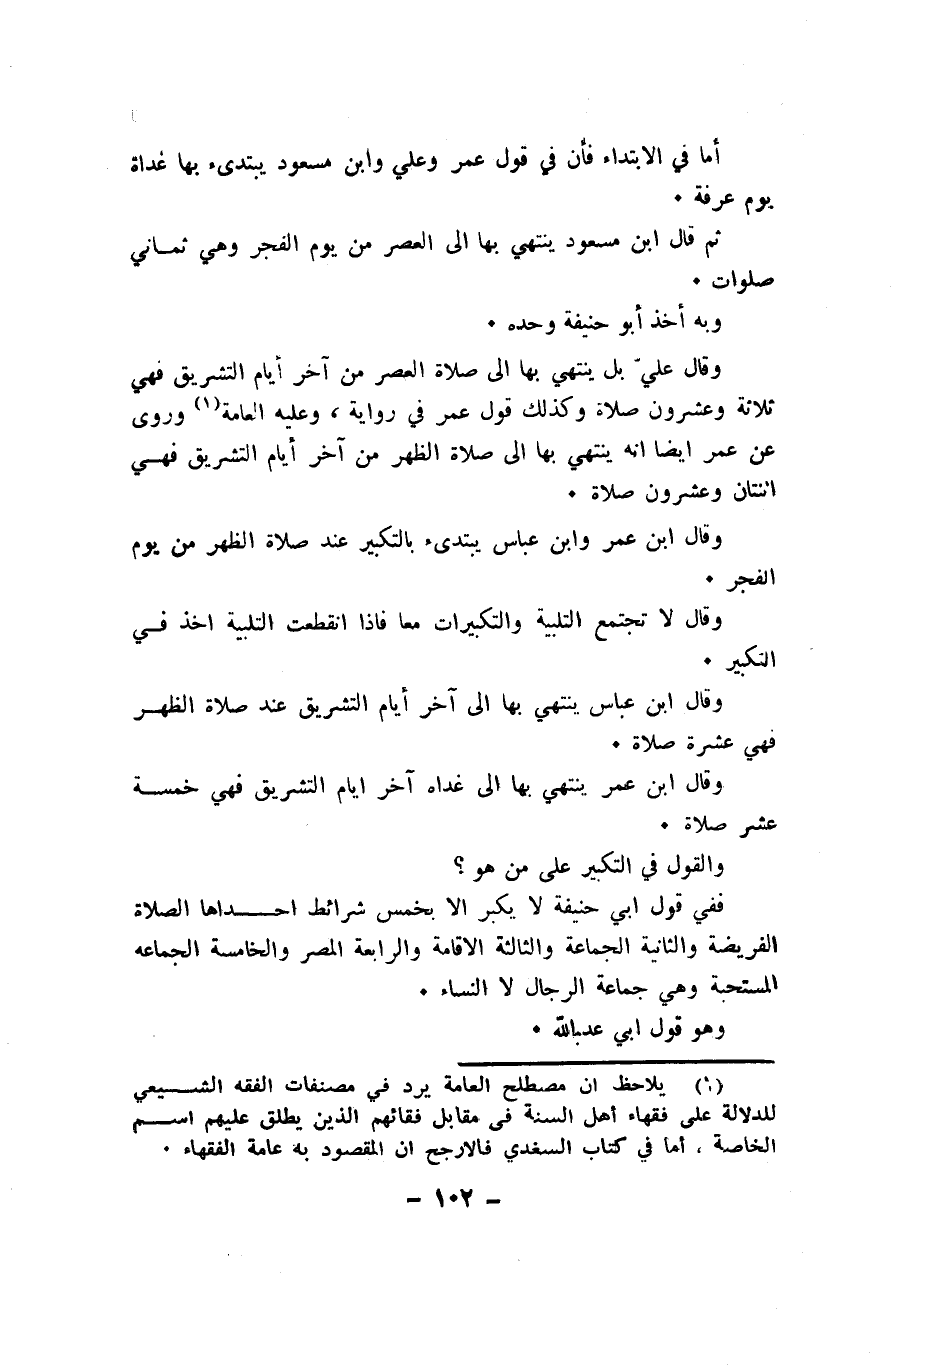 أما في الابتداء فأن في قول عمر وعلي وابن مسعود يبتدىء بها غداة
يوم عرفة ٠
ثم قال ابن مسعود ينتهي بها الى العصر من يوم الفجر وهي ثمـاني
صلوات ٠
وبه أخذ أبو حنيفة وحده ٠
وقال عليّ بل ينتهي بها الى صلاة العصر من آخر أيام التشريق فهي
ثلاثة وعشرون صلاة وكذلك قول عمر في رواية ، وعليه العامة(١) وروى
عن عمر ايضا انه ينتهي بها الى صلاة الظهر من آخر أيام التشريق فهـي
اثنتان وعشرون صلاة ٠
وقال ابن عمر وابن عباس يبتدىء بالتكبير عند صلاة الظهر من يوم
الفجر ٠
وقال لا تجتمع التلبية والتكبيرات معا فاذا انقطعت التلبية اخذ فـي
التكبير ٠
وقال ابن عباس ينتهي بها الى آخر أيام التشريق عند صلاة الظهـر
فهي عشرة صلاة ٠
وقال ابن عمر ينتهي بها الى غداه آخر ايام التشريق فهي خمسـة
عشر صلاة ٠
والقول في التكبير على من هو ؟
ففي قول ابي حنيفة لا يكبر الا بخمس شرائط احـداها الصلاة
الفريضة والثانية الجماعة والثالثة الاقامة والرابعة المصر والخامسة الجماعه
المستحبة وهي جماعة الرجال لا النساء ٠
وهو قول ابي عدبالله ٠
(١) يلاحظ ان مصطلح العامة يرد في مصنفات الفقه الشـيعي
للدلالة على فقهاء أهل السنة في مقابل فقائهم الذين يطلق عليهم اسـم
الخاصة ، أما في كتاب السغدي فالارجح ان المقصود به عامة الفقهاء ٠
- ١٠٢ -